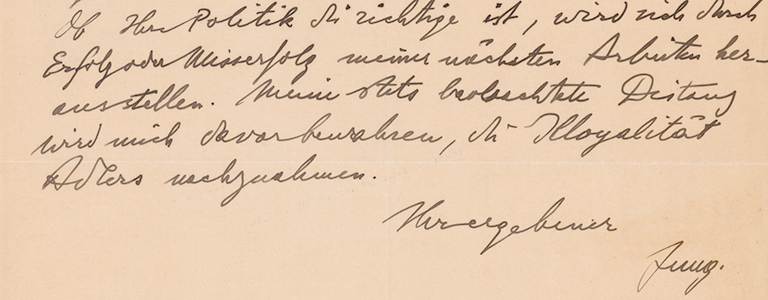 Ob Ihre Politik die richtige ist, wird sich durch
Erfolg oder Misserfolg meiner nächsten Arbeiten her-
ausstellen. Meine stets beobachtete Distanz
wird mich davor bewahren, die Illoyalität
Adlers nachzuahmen.
Ihr ergebener
Jung.